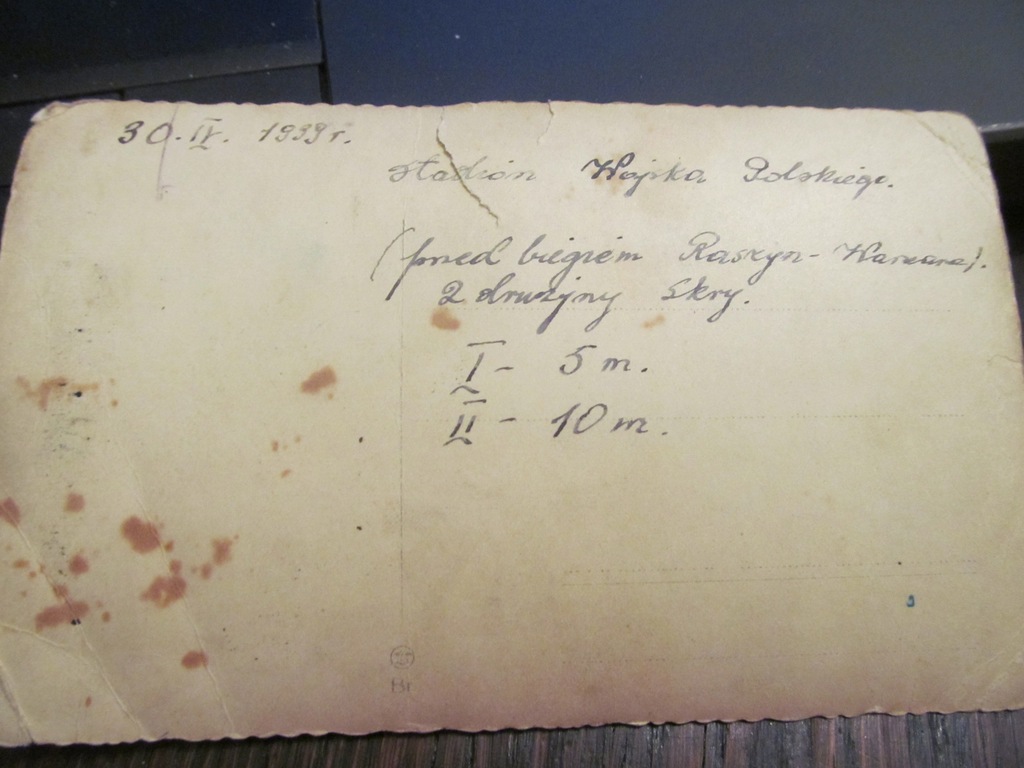 30. IV. 1939 r.
Stadion Wojska Polskiego.
(przed biegiem Raszyn - Warszawa).
2 drużyny Skry.
I - 5 m.
II - 10 m.